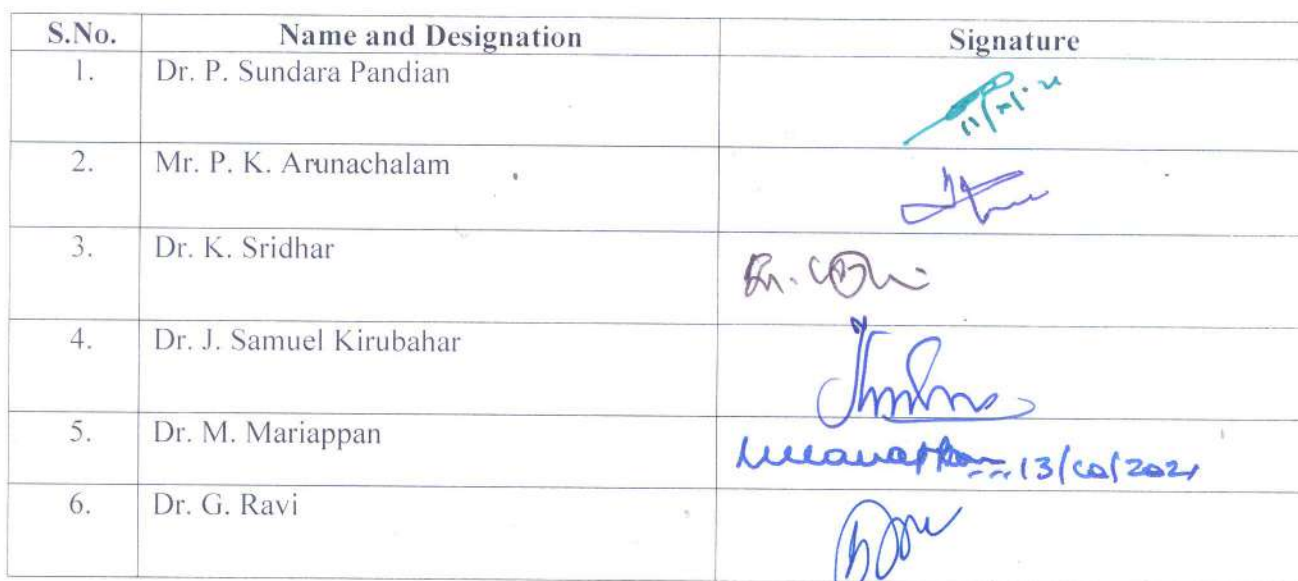 S.No. Name and Designation Signature
1. Dr. P. Sundara Pandian
2. Mr. P. K. Arunachalam
3. Dr. K. Sridhar
4. Dr. J. Samuel Kirubahar
5. Dr. M. Mariappan 13/10/2021
6. Dr. G. Ravi